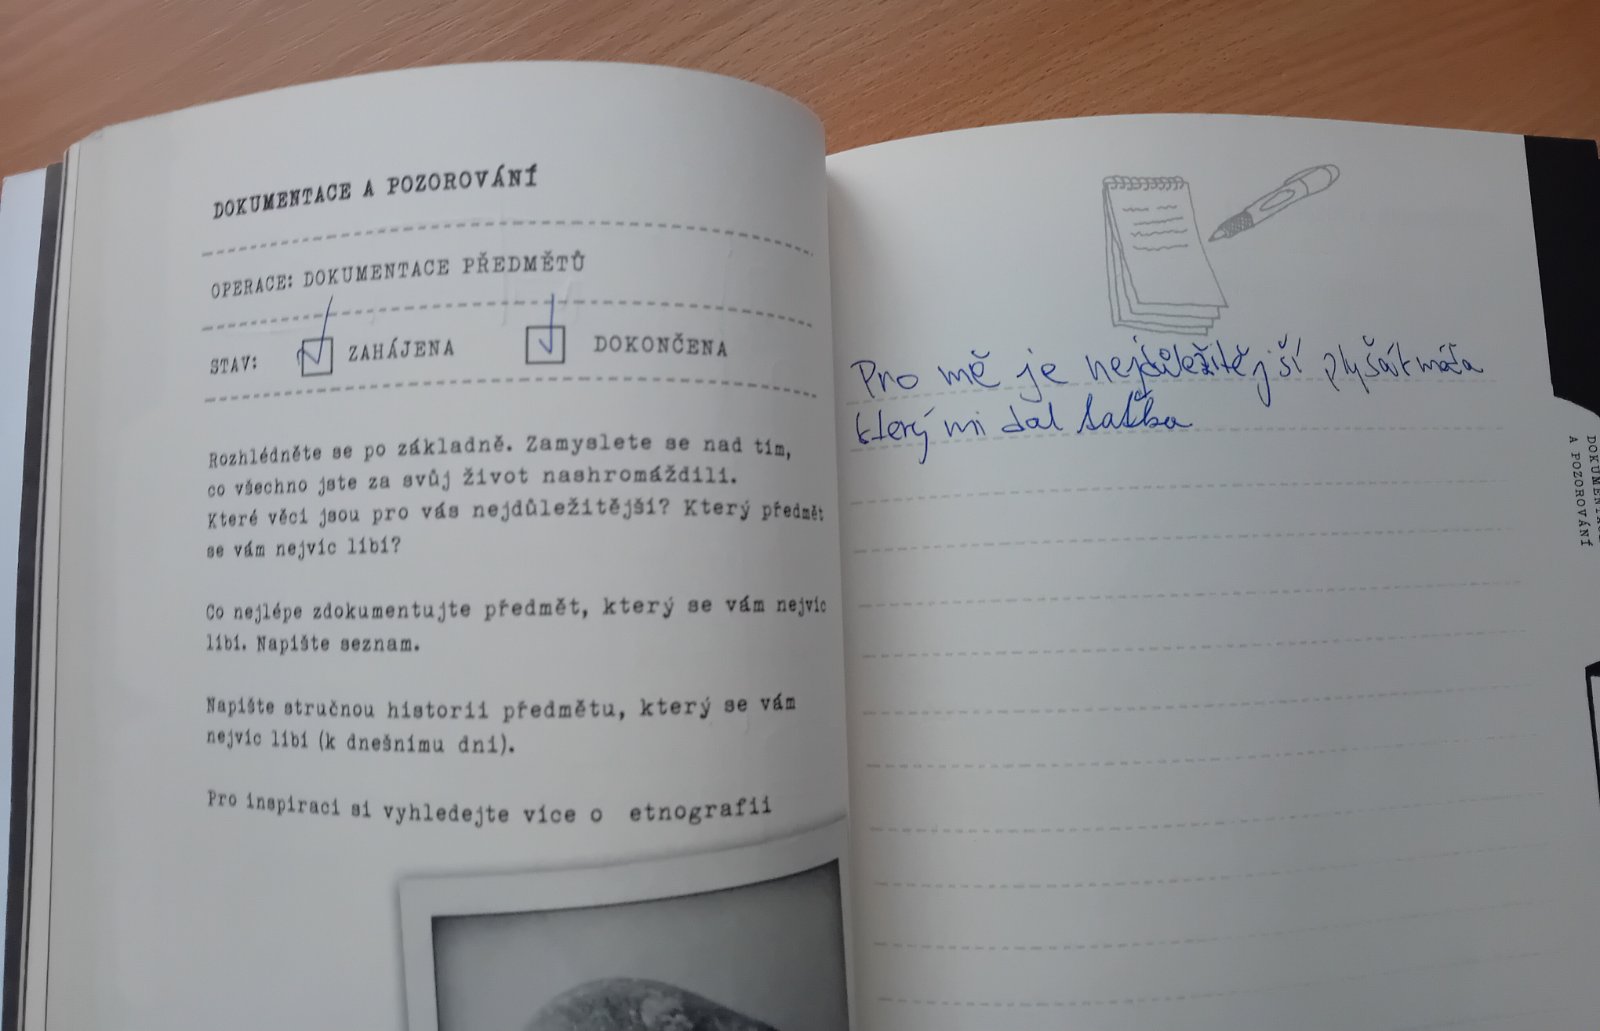 DOKUMENTACE A POZOROVÁNÍ
OPERACE: DOKUMENTACE PŘEDMĚTŮ
STAV: ZAHÁJENA DOKONČENA
Rozhlédněte se po základně. Zamyslete se nad tím,
co všechno jste za svůj život nashromáždili.
Které věci jsou pro vás nejdůležitější? Který předmět
se vám nejvíc líbí?
Co nejlépe zdokumentujte předmět, který se vám nejvíc
líbí. Napište seznam.
Napište stručnou historii předmětu, který se vám
nejvíc líbí (k dnešnímu dni).
Pro inspiraci si vyhledejte více o etnografii
Pro mě je nejdůležitější plyšát máča
který mi dal
DOKUMENTACE
A POZOROVÁNÍ